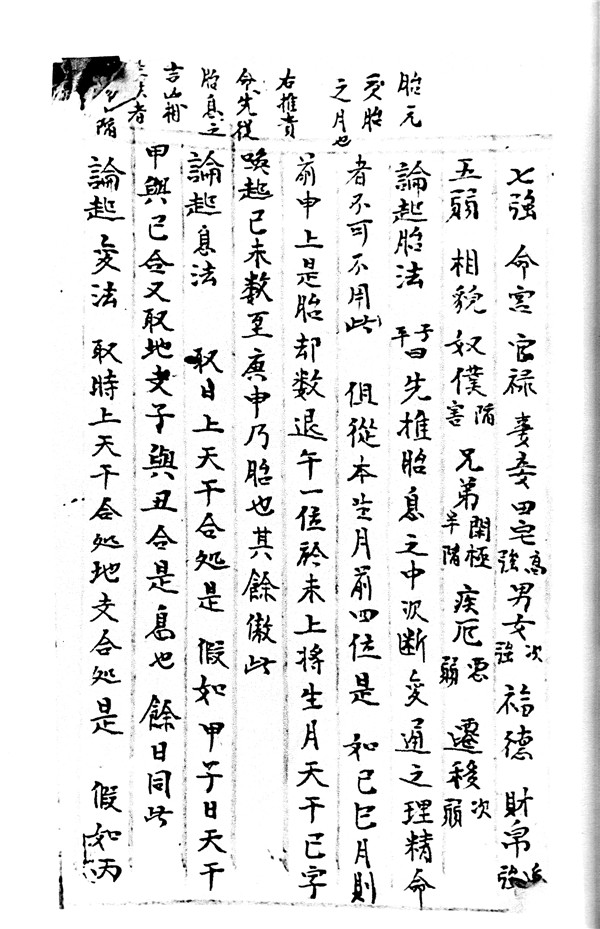 胎元
受胎
之月也
右推貴
命先從
胎息之
七強 命宮 官禄 妻妾 田宅高強 男女次強 福德 財帛強
五弱 相貌 奴僕陷害 兄弟閑極半陷 疾厄惡弱 遷移次弱
論起胎法 子平曰先推胎息之中次断变通之理精命
者不可不用此 但從本生月前四位是 如己巳月則
前申上是胎却数退午一位於未上將生月天干己字
喚起己未数至庚申乃胎也其餘倣此
論起息法 取日上天干合処是 假如甲子日天干
甲與己合又取地支子與丑合是息也 餘日同此
論起变法 取時上天干合処地支合処是 假如丙